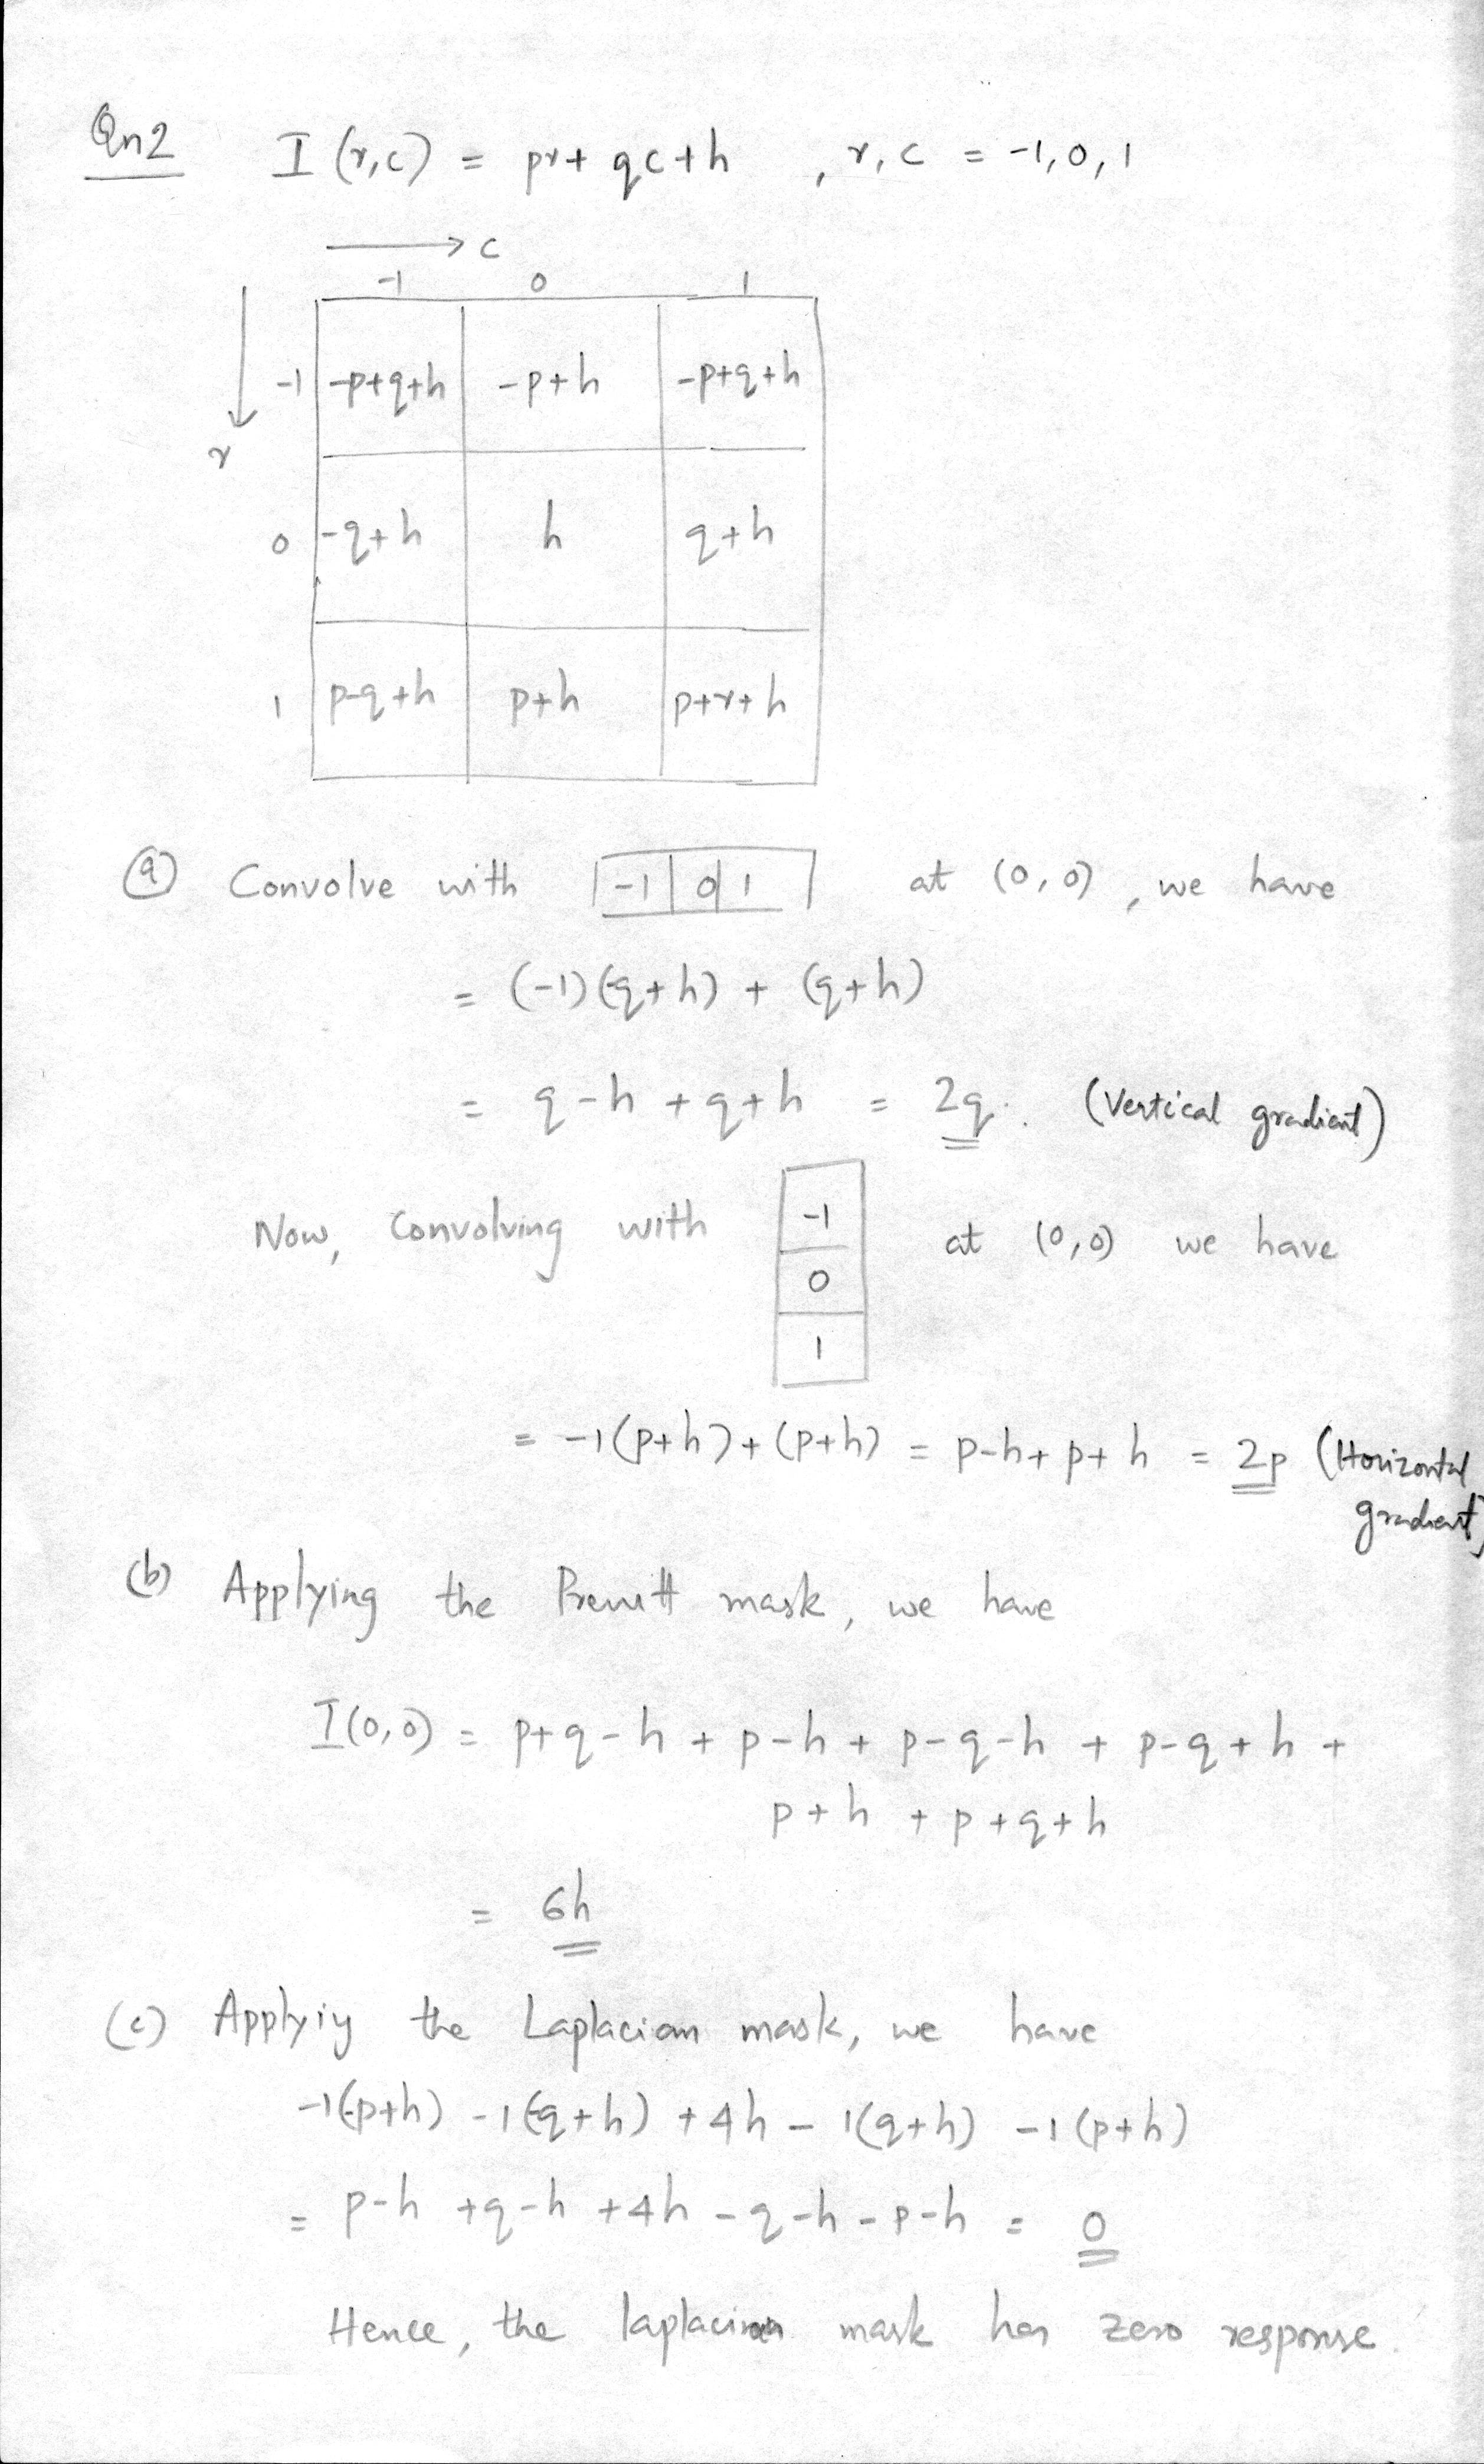 Qn2 I (r,c) = pr+ qc+h , r, c = -1, 0, 1
→ c
-1 0 1
r
-1 -p+q+h -p+h -p+q+h
0 -q+h h q+h
1 p-q+h p+h p+r+h
(a) Convolve with -1 0 1 at (0,0), we have
= (-1)(-q+h) + (q+h)
= q-h+q+h = 2q. (Vertical gradient)
Now, convolving with -1 0 1 at (0,0) we have
= -1(p+h)+(p+h) = p-h+p+h = 2p (Horizontal
gradient)
(b) Applying the Prewitt mask, we have
I(0,0) = p+q-h + p-h + p-q-h + p-q+h +
p+h + p+q+h
= 6h
(c) Applyiy the Laplacian mask, we have
-1(-p+h) -1(-q+h) +4h - 1(q+h) -1(p+h)
= p-h +q-h +4h -q-h -p-h = 0
Hence, the laplacian mask has zero response.